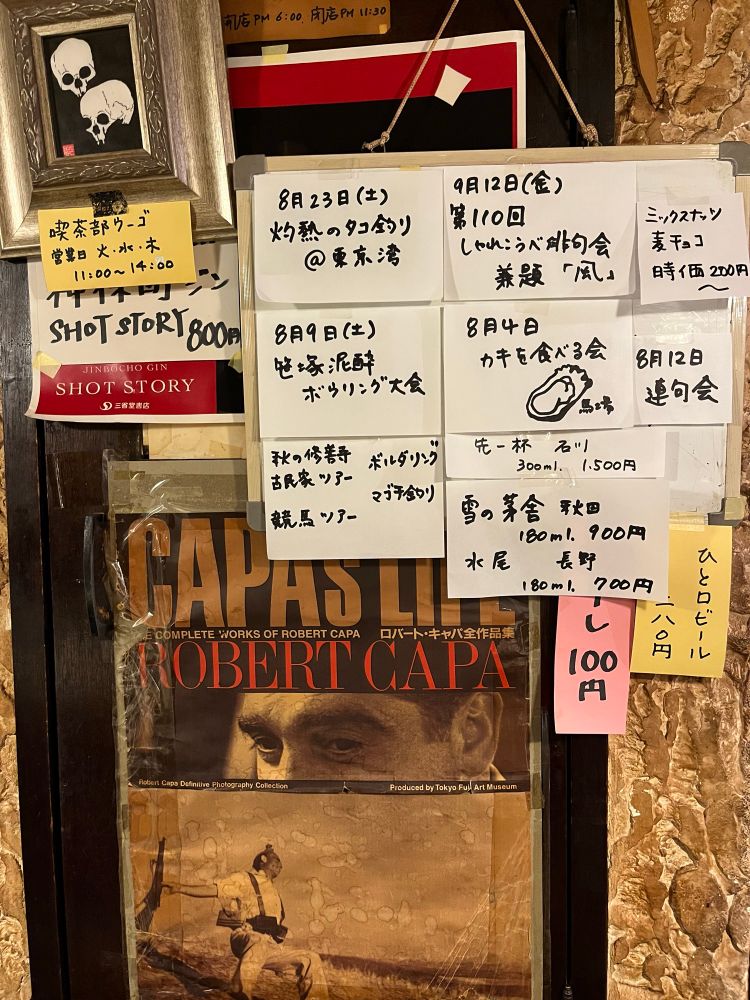 閉店PM 6:00 閉店PM 11:30
喫茶部ウーゴ
営業日 火・水・木
11:00～14:00
SHOT STORY 800円
JINBOCHO GIN
SHOT STORY
三省堂書店
8月23日(土)
灼熱のタコ釣り
@東京湾
9月12日(金)
第110回
しゃれこうべ俳句会
兼題「風」
ミックスナッツ
麦チョコ
時価200円
8月9日(土)
笹塚泥酔
ボウリング大会
8月4日
カキを食べる会
馬場
8月12日
連句会
秋の修善寺
古民家ツアー
競馬ツアー
ボルダリング
マゴチ釣り
先一杯 石川
300ml. 1.500円
雪の茅舎 秋田
180ml. 900円
水尾 長野
180ml. 700円
ひと口ビール
二八〇円
し 100円
CAPA'S LIFE
THE COMPLETE WORKS OF ROBERT CAPA ロバート・キャパ全作品集
ROBERT CAPA
Robert Capa Definitive Photography Collection
Produced by Tokyo Fuji Art Museum